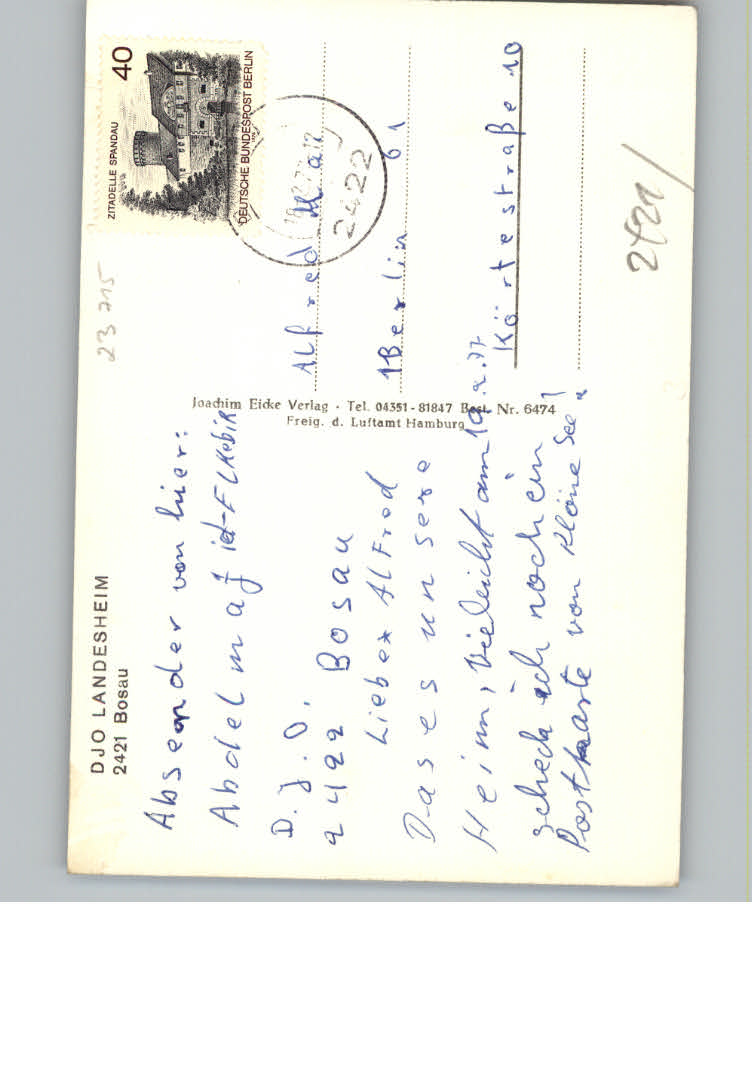 DJO LANDESHEIM
2421 Bosau
Absender von hier:
Abdelmaj id-ELKebir
D. J. O.
2422 Bosau
Lieber ALFred
Das es unsere
Heim, Vieleicht am 19.2.77
scheck ich noch ein
Postkarte von Klöne See!
Joachim Eicke Verlag · Tel. 04351-81847 Best. Nr. 6474
Freig. d. Luftamt Hamburg
23 715
ZITADELLE SPANDAU
40
DEUTSCHE BUNDESPOST BERLIN
2422
ALfred
1 Berlin 61
Körtestraße 10
2421